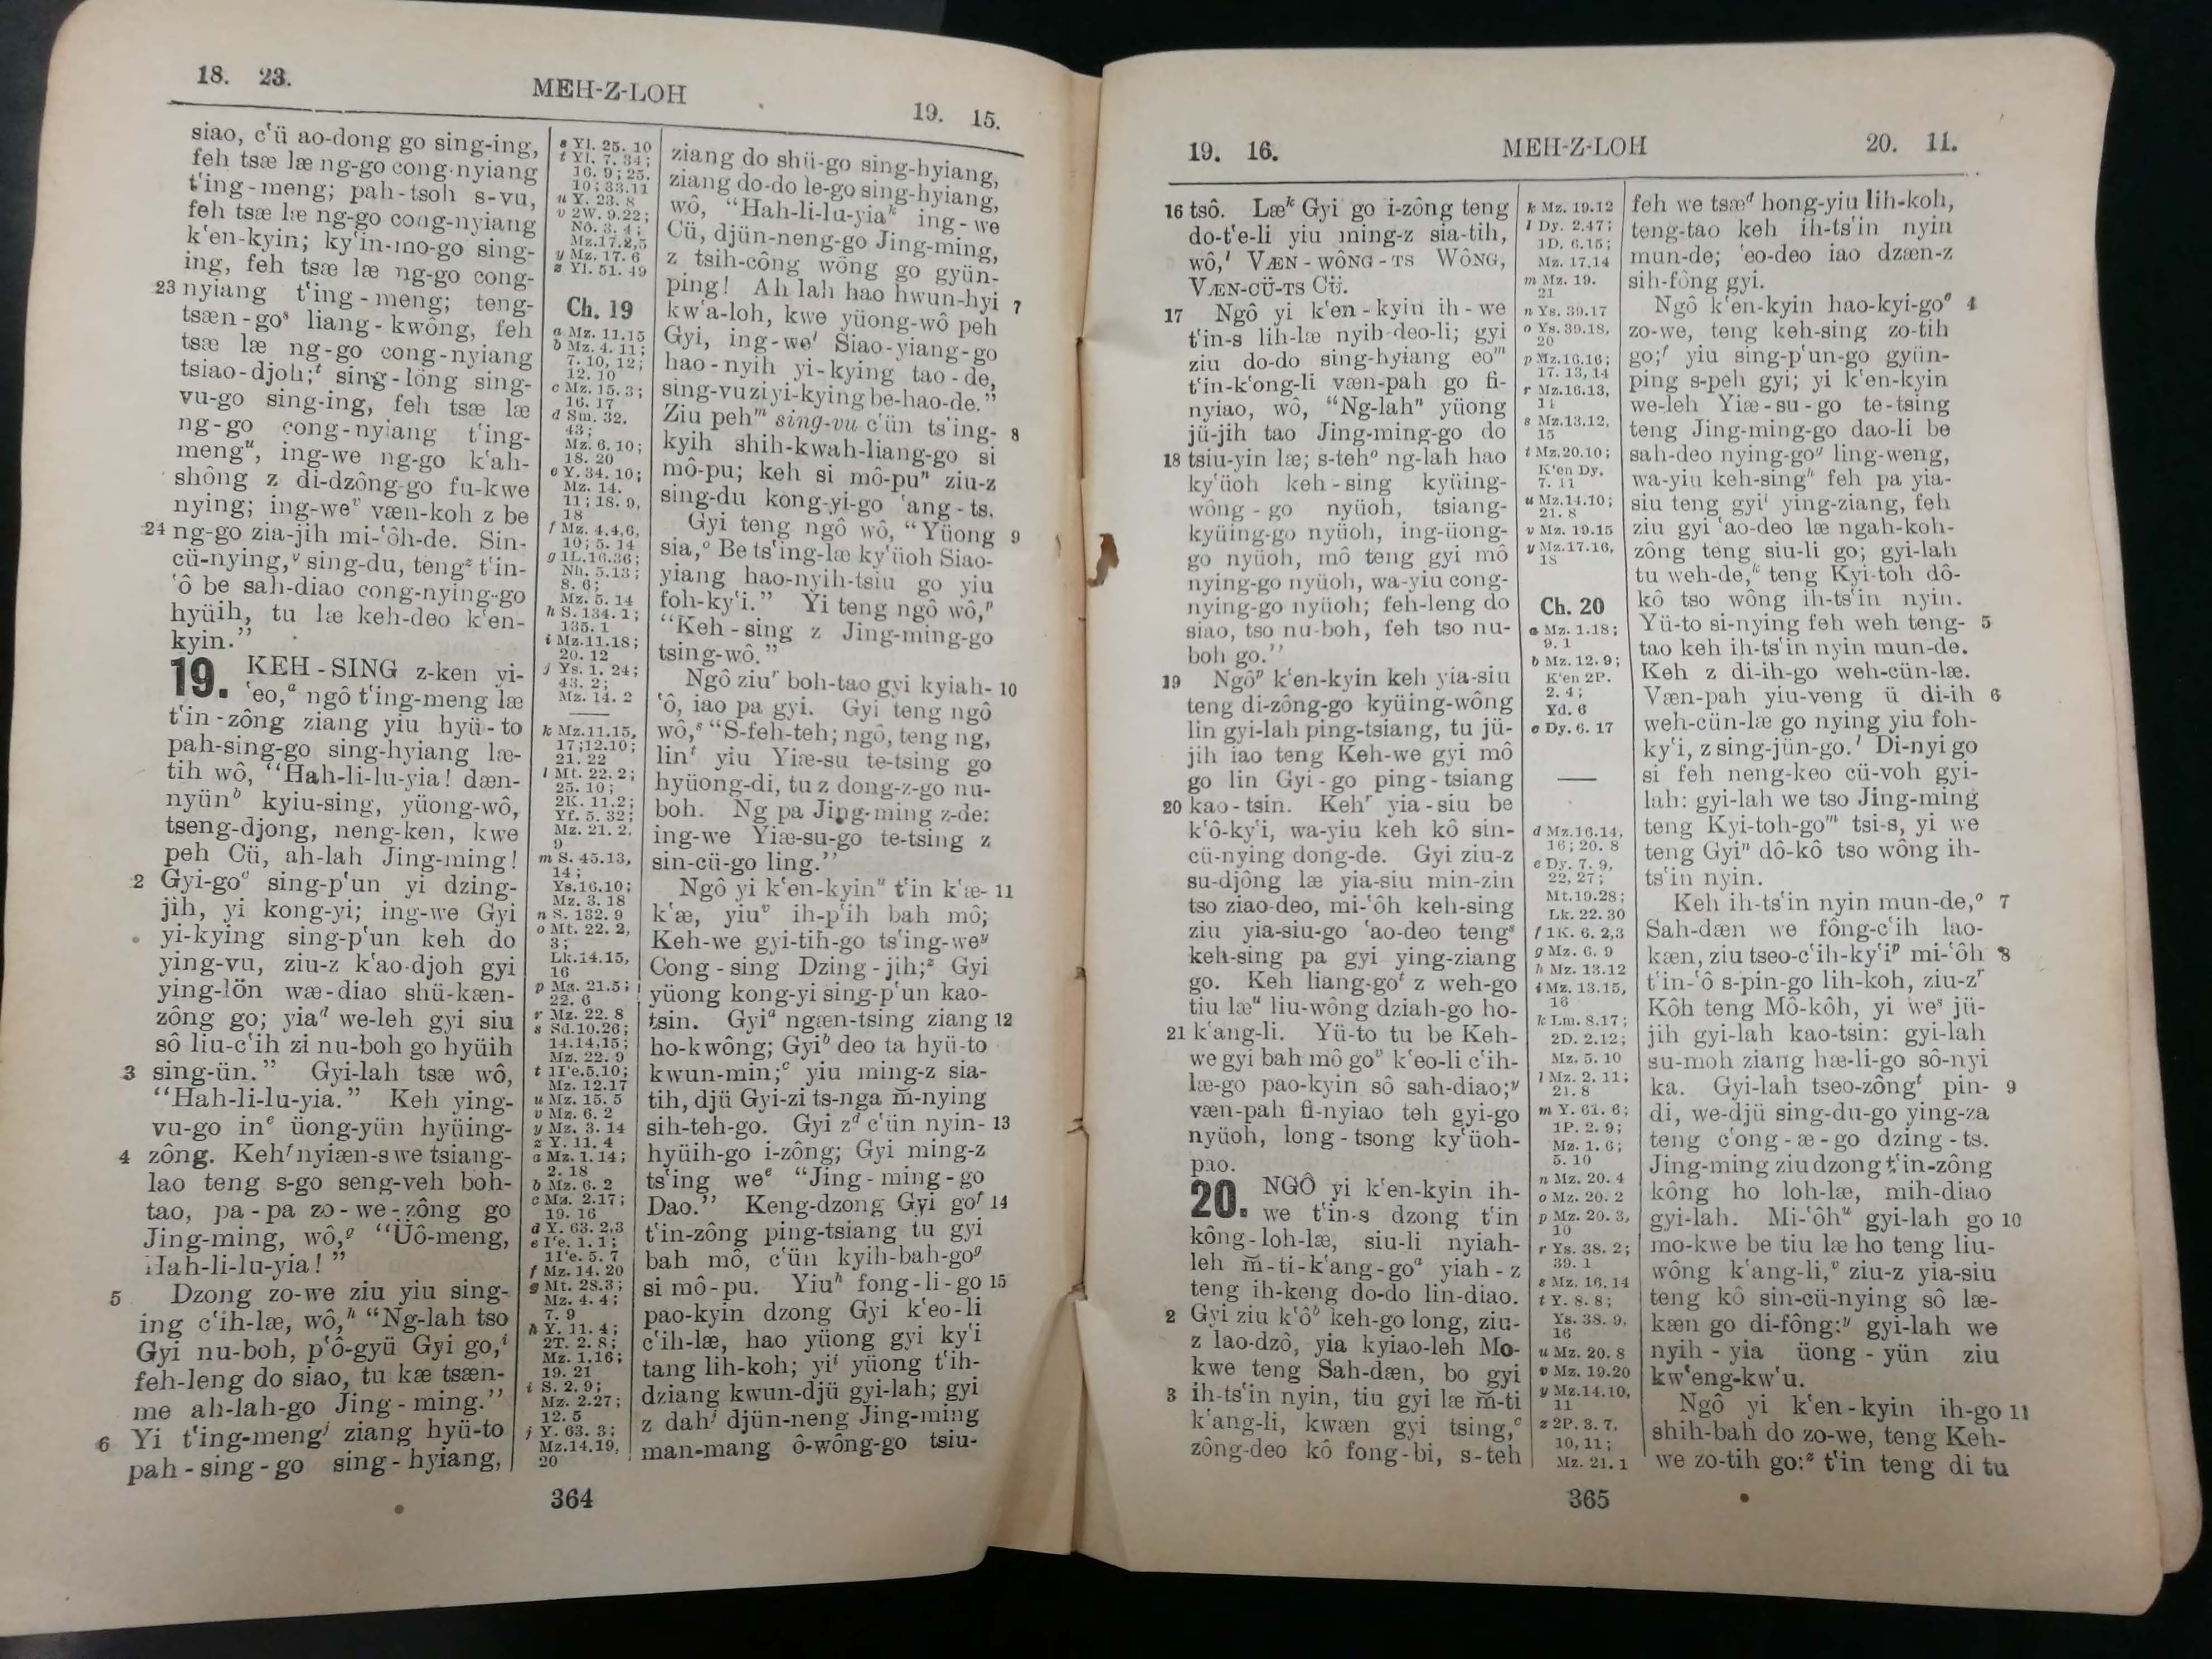 18. 23.
MEH-Z-LOH
19. 15.
siao, c‘ü ao-dong go sing-ing,
feh tsæ læ ng-go cong-nyiang
t‘ing-meng; pah-tsoh s-vu,
feh tsæ læ ng-go cong-nyiang
k‘en-kyin; ky‘in-mo-go sing-
ing, feh tsæ læ ng-go cong-
23 nyiang t‘ing-meng; teng-
tsæn-goˢ liang-kwông, feh
tsæ læ ng-go cong-nyiang
tsiao-djoh;ᵗ sing-lông sing-
vu-go sing-ing, feh tsæ læ
ng-go cong-nyiang t‘ing-
mengᵘ, ing-we ng-go k‘ah-
shông z di-dzông-go fu-kwe
nying; ing-weᵛ væn-koh z be
24 ng-go zia-jih mi-‘ôh-de. Sin-
cü-nying,ʸ sing-du, tengᶻ t‘in-
‘ô be sah-diao cong-nying-go
hyüih, tu læ keh-deo k‘en-
kyin.”
19. KEH-SING z-ken yi-
‘eo,ᵃ ngô t‘ing-meng læ
t‘in-zông ziang yiu hyü-to
pah-sing-go sing-hyiang læ-
tih wô, “Hah-li-lu-yia! dæn-
nyünᵇ kyiu-sing, yüong-wô,
tseng-djong, neng-ken, kwe
peh Cü, ah-lah Jing-ming!
2 Gyi-goᶜ sing-p‘un yi dzing-
jih, yi kong-yi; ing-we Gyi
yi-kying sing-p‘un keh do
ying-vu, ziu-z k‘ao-djoh gyi
ying-lön wæ-diao shü-kæn-
zông go; yiaᵈ we-leh gyi siu
sô liu-c‘ih zi nu-boh go hyüih
3 sing-ün.” Gyi-lah tsæ wô,
“Hah-li-lu-yia.” Keh ying-
vu-go inᵉ üong-yün hyüing-
4 zông. Kehᶠ nyiæn-s we tsiang-
lao teng s-go seng-veh boh-
tao, pa-pa zo-we-zông go
Jing-ming, wô,ᵍ “Üô-meng,
Hah-li-lu-yia!”
5 Dzong zo-we ziu yiu sing-
ing c‘ih-læ, wô,ʰ “Ng-lah tso
Gyi nu-boh, p‘ô-gyü Gyi go,ⁱ
feh-leng do siao, tu kæ tsæn-
me ah-lah-go Jing-ming.”
6 Yi t‘ing-mengʲ ziang hyü-to
pah-sing-go sing-hyiang,
s Yl. 25. 10
t Yl. 7. 34;
16. 9; 25.
10; 33.11
u Y. 23. 8
v 2W. 9.22;
Nô. 3. 4;
Mz.17.2,5
y Mz. 17. 6
z Yl. 51. 49
Ch. 19
a Mz. 11.15
b Mz. 4. 11;
7. 10, 12;
12. 10
c Mz. 15. 3;
16. 17
d Sm. 32.
43;
Mz. 6. 10;
18. 20
e Y. 34. 10;
Mz. 14.
11; 18. 9,
18
f Mz. 4.4,6,
10; 5. 14
g 1L.16.36;
Nh. 5.13;
8. 6;
Mz. 5. 14
h S. 134. 1;
135. 1
i Mz.11.18;
20. 12
j Ys. 1. 24;
43. 2;
Mz. 14. 2
k Mz.11.15,
17;12.10;
21. 22
l Mt. 22. 2;
25. 10;
2K. 11.2;
Yf. 5. 32;
Mz. 21. 2,
9
m S. 45.13,
14;
Ys.16.10;
Mz. 3. 18
n S. 132. 9
o Mt. 22. 2,
3;
Lk.14.15,
16
p Mz. 21.5;
22. 6
r Mz. 22. 8
s Sd.10.26;
14.14,15;
Mz. 22. 9
t 1I‘e.5.10;
Mz. 12.17
u Mz. 15. 5
v Mz. 6. 2
y Mz. 3. 14
z Y. 11. 4
a Mz. 1. 14;
2. 18
b Mz. 6. 2
c Mz. 2.17;
19. 16
d Y. 63. 2,3
e I‘e. 1. 1;
1I‘e. 5. 7
f Mz. 14. 20
g Mt. 28.3;
Mz. 4. 4;
7. 9
h Y. 11. 4;
2T. 2. 8;
Mz. 1.16;
19. 21
i S. 2. 9;
Mz. 2.27;
12. 5
j Y. 63. 3;
Mz.14.19,
20
ziang do shü-go sing-hyiang,
ziang do-do le-go sing-hyiang,
wô, “Hah-li-lu-yiaᵏ ing-we
Cü, djün-neng-go Jing-ming,
z tsih-công wông go gyün-
ping! Ah lah hao hwun-hyi 7
kw‘a-loh, kwe yüong-wô peh
Gyi, ing-weˡ Siao-yiang-go
hao-nyih yi-kying tao-de,
sing-vu zi yi-kying be-hao-de.”
Ziu pehᵐ sing-vu c‘ün ts‘ing- 8
kyih shih-kwah-liang-go si
mô-pu; keh si mô-puⁿ ziu-z
sing-du kong-yi-go ‘ang-ts.
Gyi teng ngô wô, “Yüong 9
sia,ᵒ Be ts‘ing-læ ky‘üoh Siao-
yiang hao-nyih-tsiu go yiu
foh-ky‘i.” Yi teng ngô wô,ᵖ
“Keh-sing z Jing-ming-go
tsing-wô.”
Ngô ziuʳ boh-tao gyi kyiah- 10
‘ô, iao pa gyi. Gyi teng ngô
wô,ˢ “S-feh-teh; ngô, teng ng,
linᵗ yiu Yiæ-su te-tsing go
hyüong-di, tu z dong-z-go nu-
boh. Ng pa Jing-ming z-de:
ing-we Yiæ-su-go te-tsing z
sin-cü-go ling.”
Ngô yi k‘en-kyinᵘ t‘in k‘æ- 11
k‘æ, yiuᵛ ih-p‘ih bah mô;
Keh-we gyi-tih-go ts‘ing-weʸ
Cong-sing Dzing-jih;ᶻ Gyi
yüong kong-yi sing-p‘un kao-
tsin. Gyiᵃ ngæn-tsing ziang 12
ho-kwông; Gyiᵇ deo ta hyü-to
kwun-min;ᶜ yiu ming-z sia-
tih, djü Gyi-zi ts-nga m̆-nying
sih-teh-go. Gyi zᵈ c‘ün nyin- 13
hyüih-go i-zông; Gyi ming-z
ts‘ing weᵉ “Jing-ming-go
Dao.” Keng-dzong Gyi goᶠ 14
t‘in-zông ping-tsiang tu gyi
bah mô, c‘ün kyih-bah-goᵍ
si mô-pu. Yiuʰ fong-li-go 15
pao-kyin dzong Gyi k‘eo-li
c‘ih-læ, hao yüong gyi ky‘i
tang lih-koh; yiⁱ yüong t‘ih-
dziang kwun-djü gyi-lah; gyi
z dahʲ djün-neng Jing-ming
man-mang ô-wông-go tsiu-
364
19. 16.
MEH-Z-LOH
20. 11.
16 tsô. Læᵏ Gyi go i-zông teng
do-t‘e-li yiu ming-z sia-tih,
wô,ˡ VÆN-WÔNG-TS WÔNG,
VÆN-CÜ-TS CÜ.
17 Ngô yi k‘en-kyin ih-we
t‘in-s lih-læ nyib-deo-li; gyi
ziu do-do sing-hyiang eoᵐ
t‘in-k‘ong-li væn-pah go fi-
nyiao, wô, “Ng-lahⁿ yüong
jü-jih tao Jing-ming-go do
18 tsiu-yin læ; s-tehᵒ ng-lah hao
ky‘üoh keh-sing kyüing-
wông-go nyüoh, tsiang-
kyüing-go nyüoh, ing-üong-
go nyüoh, mô teng gyi mô
nying-go nyüoh, wa-yiu cong-
nying-go nyüoh; feh-leng do
siao, tso nu-boh, feh tso nu-
boh go.”
19 Ngôᵖ k‘en-kyin keh yia-siu
teng di-zông-go kyüing-wông
lin gyi-lah ping-tsiang, tu jü-
jih iao teng Keh-we gyi mô
go lin Gyi-go ping-tsiang
20 kao-tsin. Kehʳ yia-siu be
k‘ô-ky‘i, wa-yiu keh kô sin-
cü-nying dong-de. Gyi ziu-z
su-djông læ yia-siu min-zin
tso ziao-deo, mi-‘ôh keh-sing
ziu yia-siu-go ‘ao-deo tengˢ
keh-sing pa gyi ying-ziang
go. Keh liang-goᵗ z weh-go
tiu læᵘ liu-wông dziah-go ho-
21 k‘ang-li. Yü-to tu be Keh-
we gyi bah mô goᵛ k‘eo-li c‘ih-
læ-go pao-kyin sô sah-diao;ʸ
væn-pah fi-nyiao teh gyi-go
nyüoh, long-tsong ky‘üoh-
pao.
20. NGÔ yi k‘en-kyin ih-
we t‘in-s dzong t‘in
kông-loh-læ, siu-li nyiah-
leh m̆-ti-k‘ang-goᵃ yiah-z
teng ih-keng do-do lin-diao.
2 Gyi ziu k‘ôᵇ keh-go long, ziu-
z lao-dzô, yia kyiao-leh Mo-
kwe teng Sah-dæn, bo gyi
3 ih-ts‘in nyin, tiu gyi læ m̆-ti
k‘ang-li, kwæn gyi tsing,ᶜ
zông-deo kô fong-bi, s-teh
k Mz. 19.12
l Dy. 2.47;
1D. 6.15;
Mz. 17.14
m Mz. 19.
21
n Ys. 39.17
o Ys. 39.18,
20
p Mz.16.16;
17. 13, 14
r Mz.16.13,
14
s Mz.13.12,
15
t Mz.20.10;
K‘en Dy.
7. 11
u Mz.14.10;
21. 8
v Mz. 19.15
y Mz.17.16,
18
Ch. 20
a Mz. 1.18;
9. 1
b Mz. 12. 9;
K‘en 2P.
2. 4;
Yd. 6
c Dy. 6. 17
d Mz.16.14,
16; 20. 8
e Dy. 7. 9,
22, 27;
Mt.19.28;
Lk. 22. 30
f 1K. 6. 2,3
g Mz. 6. 9
h Mz. 13.12
i Mz. 13.15,
16
k Lm. 8.17;
2D. 2.12;
Mz. 5. 10
l Mz. 2. 11;
21. 8
m Y. 61. 6;
1P. 2. 9;
Mz. 1. 6;
5. 10
n Mz. 20. 4
o Mz. 20. 2
p Mz. 20. 3,
10
r Ys. 38. 2;
39. 1
s Mz. 16. 14
t Y. 8. 8;
Ys. 38. 9,
16
u Mz. 20. 8
v Mz. 19.20
y Mz.14.10,
11
z 2P. 3. 7,
10, 11;
Mz. 21. 1
feh we tsæᵈ hong-yiu lih-koh,
teng-tao keh ih-ts‘in nyin
mun-de; ‘eo-deo iao dzæn-z
sih-fông gyi.
Ngô k‘en-kyin hao-kyi-goᵉ 4
zo-we, teng keh-sing zo-tih
go;ᶠ yiu sing-p‘un-go gyün-
ping s-peh gyi; yi k‘en-kyin
we-leh Yiæ-su-go te-tsing
teng Jing-ming-go dao-li be
sah-deo nying-goᵍ ling-weng,
wa-yiu keh-singʰ feh pa yia-
siu teng gyiⁱ ying-ziang, feh
ziu gyi ‘ao-deo læ ngah-koh-
zông teng siu-li go; gyi-lah
tu weh-de,ᵏ teng Kyi-toh dô-
kô tso wông ih-ts‘in nyin.
Yü-to si-nying feh weh teng- 5
tao keh ih-ts‘in nyin mun-de.
Keh z di-ih-go weh-cün-læ.
Væn-pah yiu-veng ü di-ih 6
weh-cün-læ go nying yiu foh-
ky‘i, z sing-jün-go.ˡ Di-nyi go
si feh neng-keo cü-voh gyi-
lah: gyi-lah we tso Jing-ming
teng Kyi-toh-goᵐ tsi-s, yi we
teng Gyiⁿ dô-kô tso wông ih-
ts‘in nyin.
Keh ih-ts‘in nyin mun-de,ᵒ 7
Sah-dæn we fông-c‘ih lao-
kæn, ziu tseo-c‘ih-ky‘iᵖ mi-‘ôh 8
t‘in-‘ô s-pin-go lih-koh, ziu-zʳ
Kôh teng Mô-kôh, yi weˢ jü-
jih gyi-lah kao-tsin: gyi-lah
su-moh ziang hæ-li-go sô-nyi
ka. Gyi-lah tseo-zôngᵗ pin- 9
di, we-djü sing-du-go ying-za
teng c‘ong-æ-go dzing-ts.
Jing-ming ziu dzong t‘in-zông
kông ho loh-læ, mih-diao
gyi-lah. Mi-‘ôhᵘ gyi-lah go 10
mo-kwe be tiu læ ho teng liu-
wông k‘ang-li,ᵛ ziu-z yia-siu
teng kô sin-cü-nying sô læ-
kæn go di-fông:ʸ gyi-lah we
nyih-yia üong-yün ziu
kw‘eng-kw‘u.
Ngô yi k‘en-kyin ih-go 11
shih-bah do zo-we, teng Keh-
we zo-tih go:ᶻ t‘in teng di tu
365